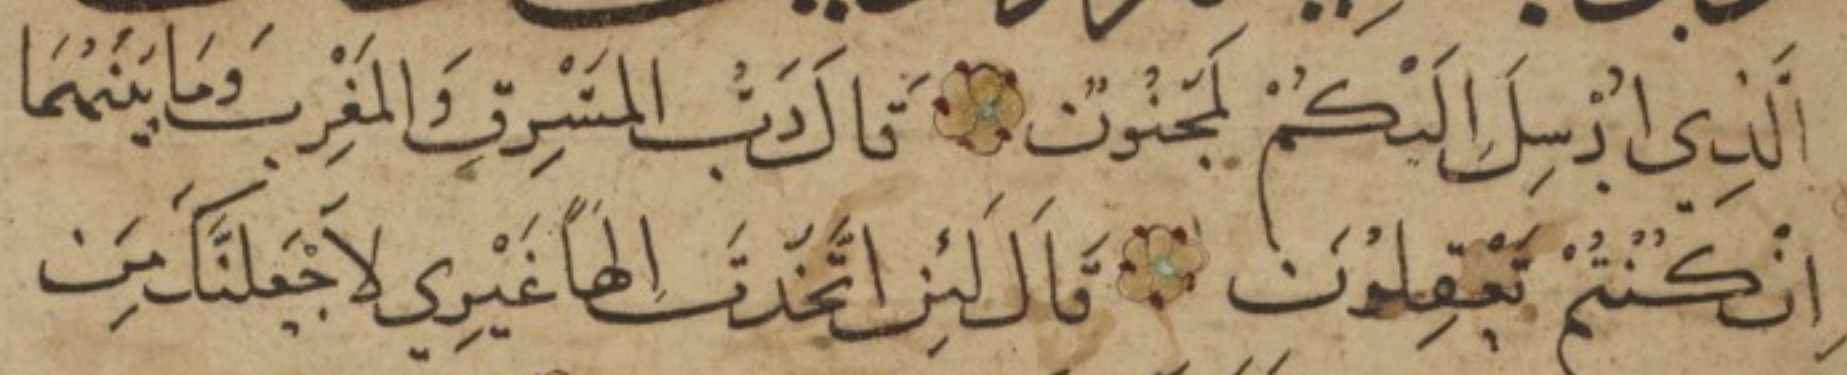 الَّذِي اُرْسِلَ اِلَيْكُمْ لَمَجْنُونٌ قَالَ رَبُّ الْمَشْرِقِ وَالْمَغْرِبِ وَمَا بَيْنَهُمَا
اِنْ كُنْتُمْ تَعْقِلُونَ قَالَ لَئِنِ اتَّخَذْتَ اِلٰهاً غَيْرِي لَاَجْعَلَنَّكَ مِنَ